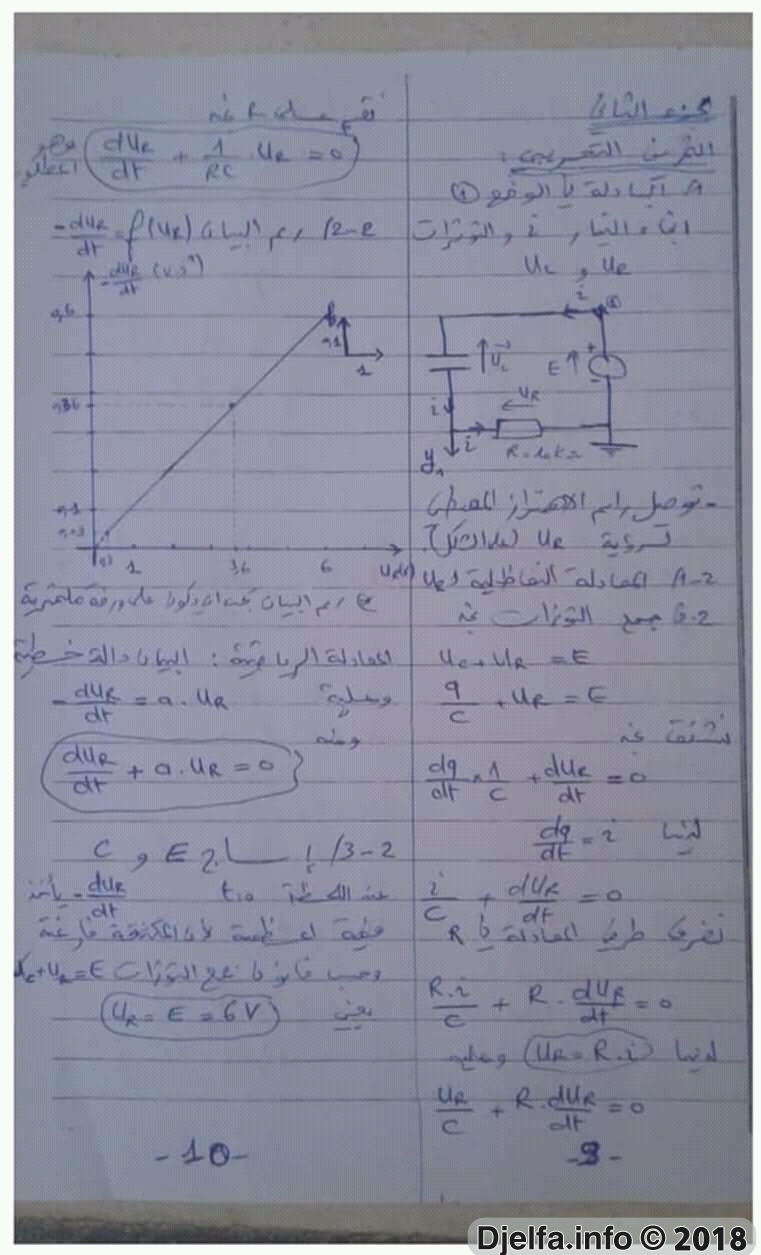 الجزء الثاني
التمرين التجريبي:
UR و UC
i
E
UC
i
UR
i
R = 10 kΩ
y1
توصيل راسم الاهتزاز المهبطي
لرؤية UR
A-2 المعادلة التفاضلية لـ UR
جمع التوترات نجد
UC + UR = E
q/C + UR = E
نشتق نجد
dq/dt . 1/C + dUR/dt = 0
لدينا dq/dt = i
i/C + dUR/dt = 0
نضرب طرفي المعادلة في R
R.i/C + R . dUR/dt = 0
لدينا UR = R.i وعليه
UR/C + R . dUR/dt = 0
-9-
نقسم على R نجد
dUR/dt + 1/RC . UR = 0 وهو المطلوب
2-2/ رسم البيان -dUR/dt = f(UR)
-dUR/dt (V.s⁻¹)
0,6
0,36
0,1
0,1
1
1
3,6
6
UR(V)
رسم البيان يجب ان يكون على ورقة مليمترية
المعادلة الرياضية: البيان دالة خطية
وعليه -dUR/dt = a . UR
ومنه
dUR/dt + a . UR = 0
3-2/ إيجاد E و C
عند اللحظة t=0 -dUR/dt يأخذ
قيمة أعظمية لأن المكثفة فارغة
وحسب قانون جمع التوترات UC + UR = E
يعني UR = E = 6V
-10-
Djelfa.info © 2018